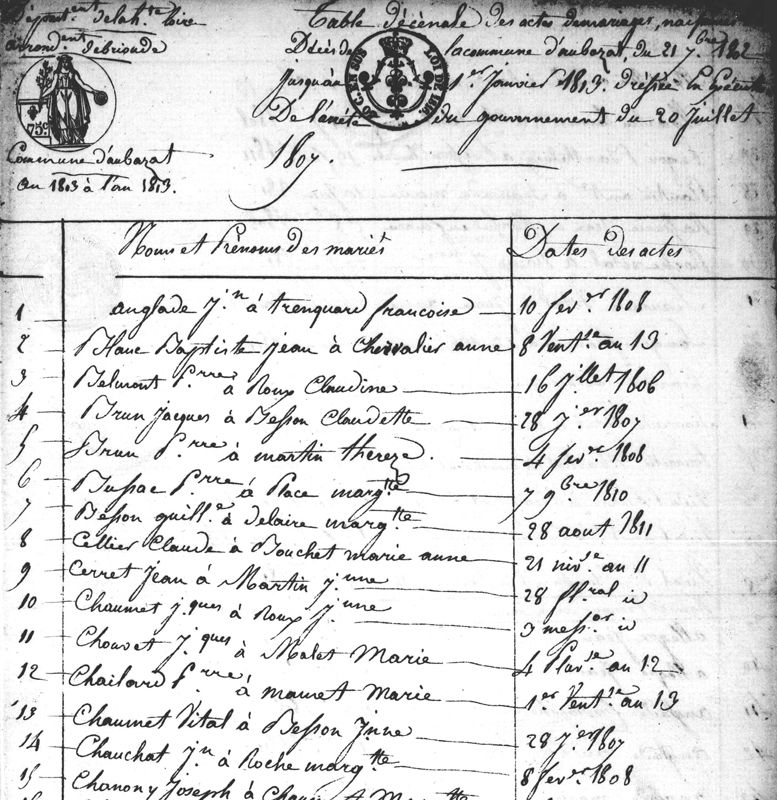 Départ.ent delah.te loire
arrond.ent debrioude
75c
Commune d'aubazat
an 1803 à l'an 1813.
Table décénale des actes demariages, naissances
Décès de la commune d'aubazat, du 21 7.bre 1802
jusqu'au 1.er janvier 1813. dressée En Exécution
De l'arrêté du gouvernement du 20 Juillet
1807.
LOI DE
Noms et Prénoms des mariés
Dates des actes
1 anglade j.n à trenquard francoise 10 fev.er 1808
2 Blanc Baptiste jean à Chevalier anne 8 Vent.se an 13
3 Belmont P.rre à Roux Claudine 16 j.llet 1806
4 Brun Jacques à Besson Claudette 28 j.er 1807
5 Brun P.rre à martin thereze. 4 fev.re 1808
6 Bussac P.rre à Place marg.tte 7 9.bre 1810
7 Besson guill.e à delaire marg.tte 28 aout 1811
8 Cellier Claude à Bouchet marie anne 21 niv.se an 11
9 Cerret Jean à Martin j.nne 28 fl.ral id
10 Chaumet j.ques à Roux j.nne 3 mess.or id
11 Chouvet j.ques à Malet Marie 4 Pluv.se an 12
12 Chailard P.rre à maurret Marie 1.er Vent.se an 13
13 Chaumet Vital à Besson Jnne 28 j.er 1807
14 Chauchat j.n à Roche marg.tte 8 fev.er 1808
15 Chanony Joseph à